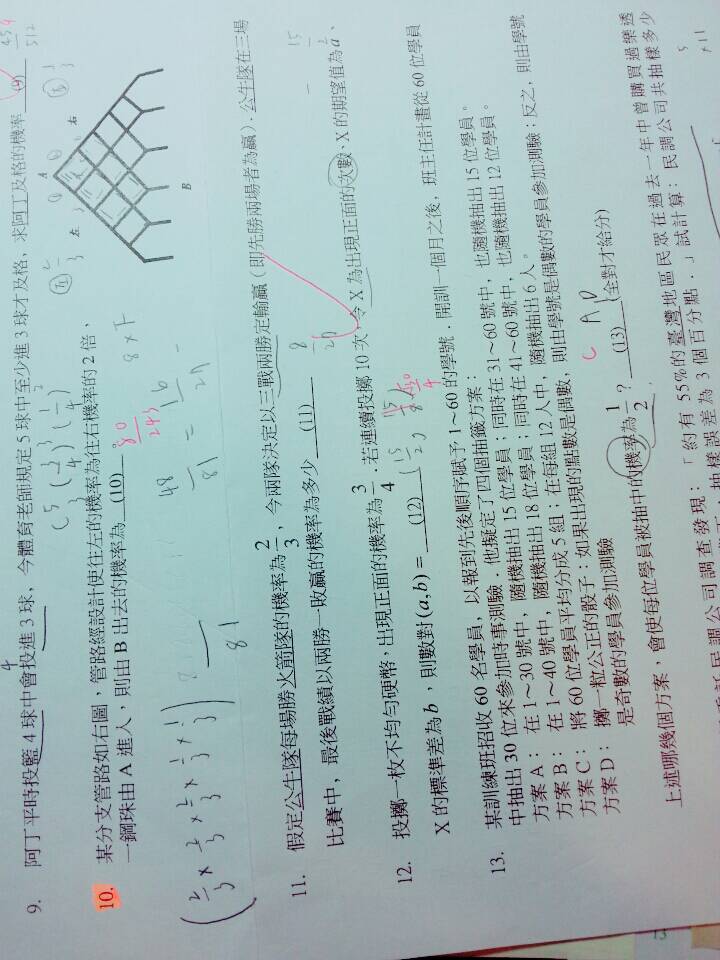 9. 阿丁平時投籃 4 球中會投進 3 球，今體育老師規定 5 球中至少進 3 球才及格，求阿丁及格的機率 (9)
459
512
10. 某分支管路如右圖，管路經設計使往左的機率為往右機率的 2 倍、
一鋼珠由 A 進入，則由 B 出去的機率為 (10) 。
80
243
A
左
右
B
11. 假定公牛隊每場勝火箭隊的機率為 2/3 ，今兩隊決定以三戰兩勝定輸贏（即先勝兩場者為贏）．公牛隊在三場
比賽中，最後戰績以兩勝一敗贏的機率為多少 (11)
8
27
12. 投擲一枚不均勻硬幣，出現正面的機率為 3/4 ．若連續投擲 10 次，令 X 為出現正面的次數、X 的期望值為 a、
X 的標準差為 b，則數對 (a,b) = (12)
13. 某訓練班招收 60 名學員，以報到先後順序賦予 1～60 的學號．開訓一個月之後，班主任計畫從 60 位學員
中抽出 30 位來參加時事測驗．他擬定了四個抽籤方案：
方案 A： 在 1～30 號中，隨機抽出 15 位學員；同時在 31～60 號中，也隨機抽出 15 位學員。
方案 B： 在 1～40 號中，隨機抽出 18 位學員；同時在 41～60 號中，也隨機抽出 12 位學員。
方案 C： 將 60 位學員平均分成 5 組；在每組 12 人中，隨機抽出 6 人。
方案 D： 擲一粒公正的骰子；如果出現的點數是偶數，則由學號是偶數的學員參加測驗；反之，則由學號
是奇數的學員參加測驗
上述哪幾個方案，會使每位學員被抽中的機率為 1/2 ? (13) (全對才給分)
C A D
民調公司調查發現：「約有 55%的臺灣地區民眾在過去一年中曾購買過樂透
抽樣誤差為 3 個百分點．」試計算：民調公司共抽樣多少